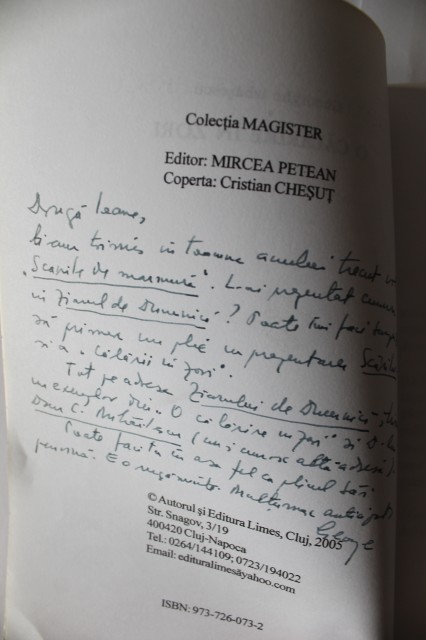 Colecția MAGISTER
Editor: MIRCEA PETEAN
Coperta: Cristian CHEȘUȚ
Dragă Ioane,
ți-am trimis în toamna anului trecut
"Scările de marmură". L-ai prezentat cumva
în Ziarul de Duminică? Poate îmi faci
să primesc un plic cu prezentarea
și a "Călării în zori".
Tot pe adresa Ziarului de Duminică,
un exemplar din "O călărire în zori" și
Dan C. Mihăilescu (nu-i cunosc altă adresă)
Poate faci tu în așa fel ca plicul să-i
parvină. E o rugăminte. Mulțumesc anticipat,
© Autorul și Editura Limes, Cluj, 2005
Str. Snagov, 3/19
400420 Cluj-Napoca
Tel.: 0264/144109; 0723/194022
Email: edituralimesàyahoo.com
ISBN: 973-726-073-2